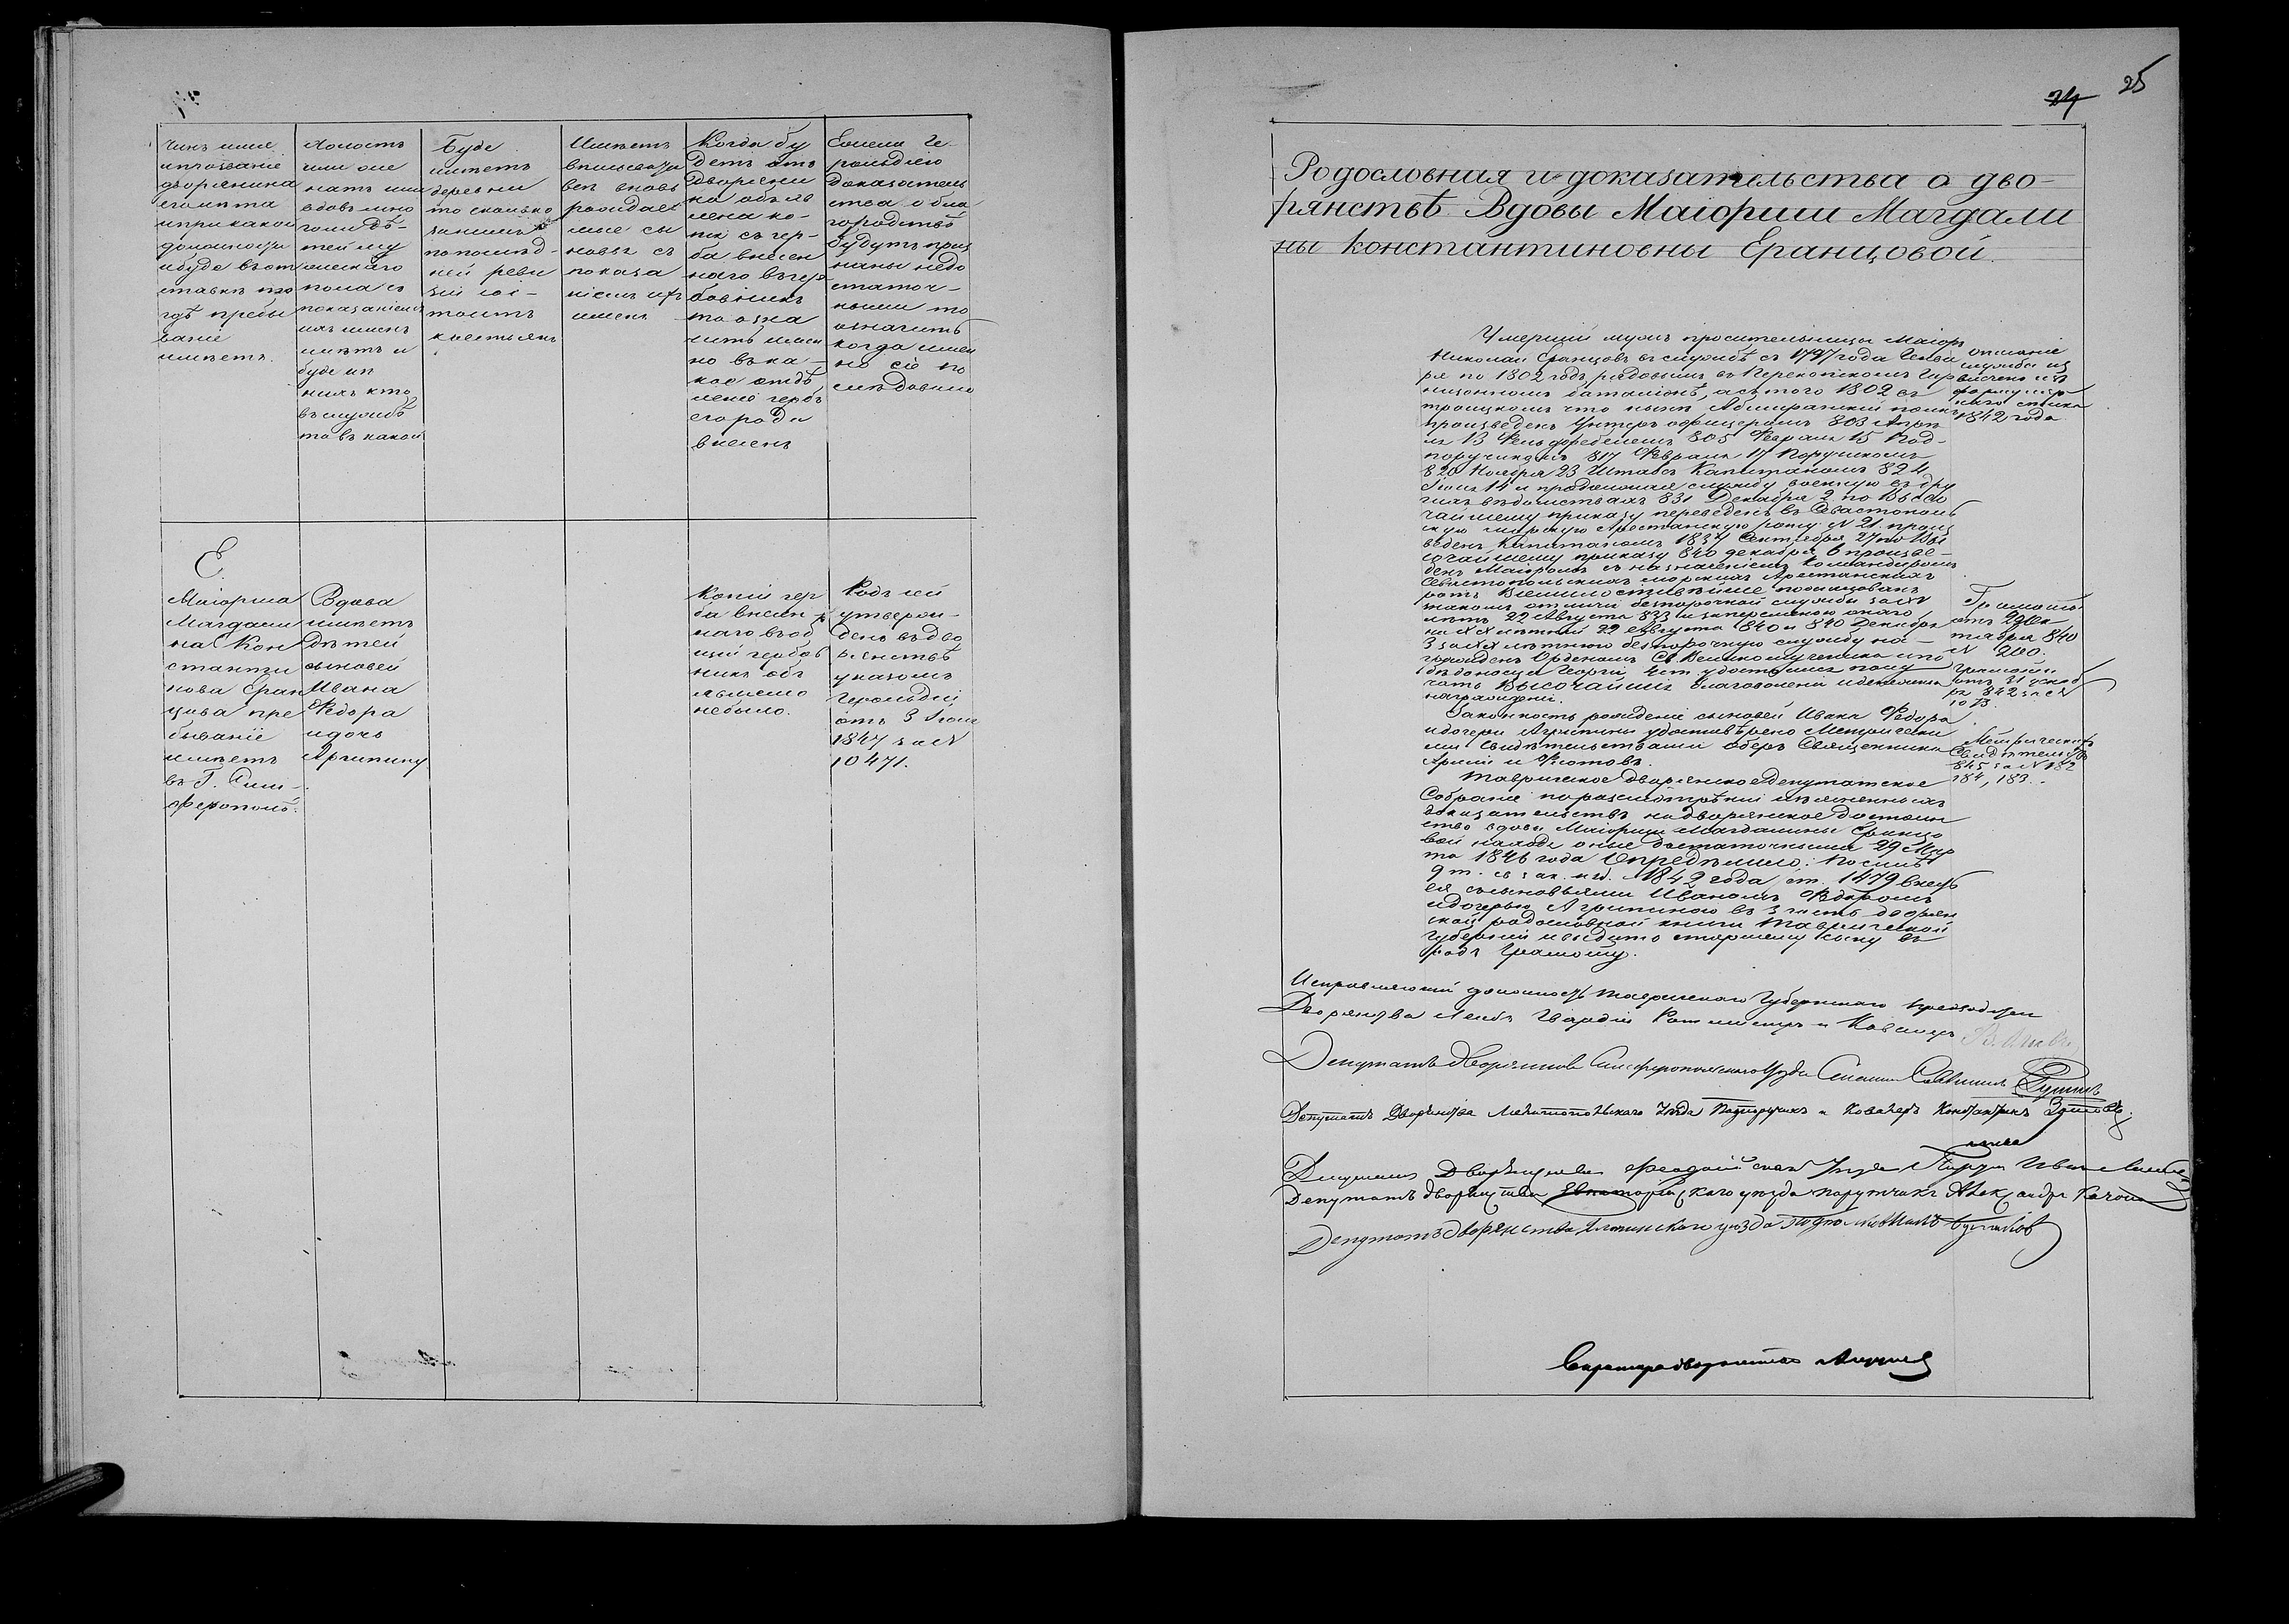 Чинъ имя
и прозваніе
дворянина
его лѣта
и при какой
должности
и буде въ от
ставкѣ то
гдѣ пребы
ваніе
имѣетъ.
Холостъ
или же
натъ или
вдовъ мно
гоми дѣ-
тей му
жескаго
пола съ
показаніемъ
ихъ именъ
лѣтъ и
буде изъ
нихъ кто
въ службѣ
то въ какой
Буде
имѣетъ
деревни
то сколько
за нимъ
по послѣд-
ней реви
зіи сос-
тоитъ
крестьянъ
Имѣетъ
вписывать
всѣ вновь
рождае
мые сы
новья съ
показа
ніемъ ихъ
именъ
Когда бу
детъ отъ
Дворяни
на объяв
лена ко-
пія съ гер-
ба внесен
наго въ гер
бовникъ
то озна
чить имен
но въ ка-
кое отдѣ
леніе гербъ
его рода
внесенъ
Ежели Ге-
рольдіею
доказатель
ства о бла
городствѣ
будутъ приз
наны недо
статоч-
ными то
означить
когда имен
но сіе по
слѣдовало
Е.
Маіорша
Магдали
на Кон
стантин
нова Еран
цова пре
бываніе
имѣетъ
въ Г. Сим-
ферополѣ.
Вдова
имѣетъ
дѣтей
сыновей
Ивана
Ѳедора
и дочь
Агрипину
Копіи гер
ба внесен-
наго въ об
щій гербов
никъ объ
явлено
небыло.
Родъ ей
утверж-
денъ въ дво
рянствѣ
указомъ
Герольдіи,
отъ 3 Іюля
1847 за №
10471.
24 25
Родословная и доказательства о дво-
рянствѣ Вдовы Маіорши Магдали
ны Константиновны Еранцовой.
Умершій мужъ просительницы Маіоръ
Николай Еранцовъ въ службѣ съ 1797 года Генва
ря по 1802 годъ рядовымъ въ Перекопскомъ Гар
низонномъ баталіонѣ, а съ того 1802 въ
Троицкомъ что нынѣ полкъ
произведенъ Унтеръ офицеромъ 803 Апрѣ
ля 13 Фельдфебелемъ 805 Февраля 15 Под-
поручикомъ 817 Февраля 17 Поручикомъ
820 Ноября 23 Штабсъ Капитаномъ 824
Іюля 14 и продолжая службу военную въ дру
гихъ вѣдомствахъ 831 Декабря 2 по Высо
чайшему приказу переведенъ въ Севастополь
скую морскую Арестанскую роту № 21. произ
веденъ Капитаномъ 1834 Сентября 27 по Вы
сочайшему приказу 840 декабря 6 произве-
денъ Маіоромъ съ назначеніемъ Командиромъ
Севастопольскихъ морскихъ Арестанскихъ
ротъ Всемилостивѣйше пожалованъ
знакомъ отличія безпорочной службы за XV
лѣтъ 22 Августа 833 и замѣненною онаго
на XX лѣтній 22 Августа 840 и 840 Декабря
3 за XX лѣтнюю безпорочную службу на-
гражденъ Орденомъ Св. Великомученика и по
бѣдоносца Георгія 4 ст. удостоился полу
чать Высочайшія благоволенія и денежныя
награжденія.
Законность рожденія сыновей Ивана Ѳедора
и дочери Агрипины удостовѣрено Метрически
ми Свидѣтельствами Оберъ Священника
Арміи и Флотовъ.
Таврическое дворянское депутатское
Собраніе по разсмотрѣніи изъясненныхъ
доказательствъ на дворянское достоин
ство вдовы Маіорши Магдалины Еранцо
вой находя оные достаточными 29 Мар
та 1846 года Опредѣлило: По силѣ
9 т. св. зак. изд. 1842 года ст. 1479 внесть
ея съ сыновьями Иваномъ Ѳедоромъ
и дочерью Агрипиною въ 3 часть дворян
ской родословной книги Таврической
губерніи и выдать старшему сыну въ
родъ Грамоту.
Описаніе
службы из
влечено изъ
формуляр
наго списка
1842 года
Грамота
отъ 2 Ок
тября 840
№ 200.
Грамота
отъ 31 Декаб
ря 842 за №
1073.
Метрическія
Свидѣтельства
845 за № 182
184, 183.
Исправляющій должность Таврическаго Губернскаго Предводителя
Дворянства Лейбъ Гвардіи Ротмистръ и Кавалеръ
Депутатъ Дворянства Симферопольскаго Уѣзда
Депутатъ Дворянства Мелитопольскаго Уѣзда Подпоручикъ и Кавалеръ Константинъ
Депутатъ Дворянства Феодосійскаго Уѣзда Иванъ
Депутатъ дворянства Евпаторійскаго уѣзда поручикъ Александръ
Депутатъ дворянства уѣзда
Секретарь дворянства